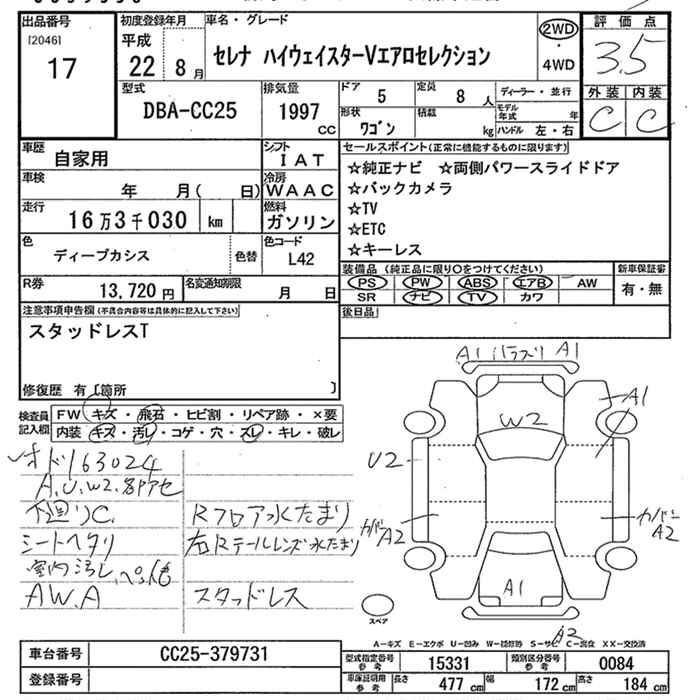 出品番号
[2046]
17
初度登録年月
平成
22年 8月
車名・グレード
セレナ ハイウェイスターVエアロセレクション
2WD
・
4WD
評価点
3.5
外装 内装
C C
型式
DBA-CC25
排気量
1997 cc
ドア
5
定員
8 人
形状
ワゴン
積載
kg
ディーラー・並行
モデル年式 年
ハンドル 左・右
車歴
自家用
シフト
IAT
車検
年 月( 日)
冷房
WAAC
走行
16万3千030 km
燃料
ガソリン
色
ディープカシス
色替
色コード
L42
R券
13,720 円
名変通知期限
月 日
セールスポイント(正常に機能するものに限ります)
☆純正ナビ ☆両側パワースライドドア
☆バックカメラ
☆TV
☆ETC
☆キーレス
装備品(純正品に限り○をつけてください)
PS PW ABS エアB AW
SR ナビ TV カワ
新車保証書
有・無
後日品
注意事項申告欄(不具合内容等は具体的に記入して下さい)
スタッドレスT
修復歴 有〔箇所 〕
検査員記入欄
FW キズ・飛石・ヒビ割・リペア跡・×要
内装 キズ・汚レ・コゲ・穴・スレ・キレ・破レ
オドリ163024
A.U.W2.各アセ
下廻りC.
シートヘタリ
室内汚レ
AW.A
Rフロア水たまり
右Rテールレンズ水たまり
スタッドレス
A1 バラズリ A1
A1
W2
U2
カバーA2
カバーA2
A1
A2
スペア
A-キズ E-エクボ U-凹み W-補修跡 S-サビ C-腐食 XX-交換済
車台番号
CC25-379731
登録番号
型式指定番号 参考
15331
類別区分番号 参考
0084
車庫証明用 参考
長さ 477 cm
幅 172 cm
高さ 184 cm